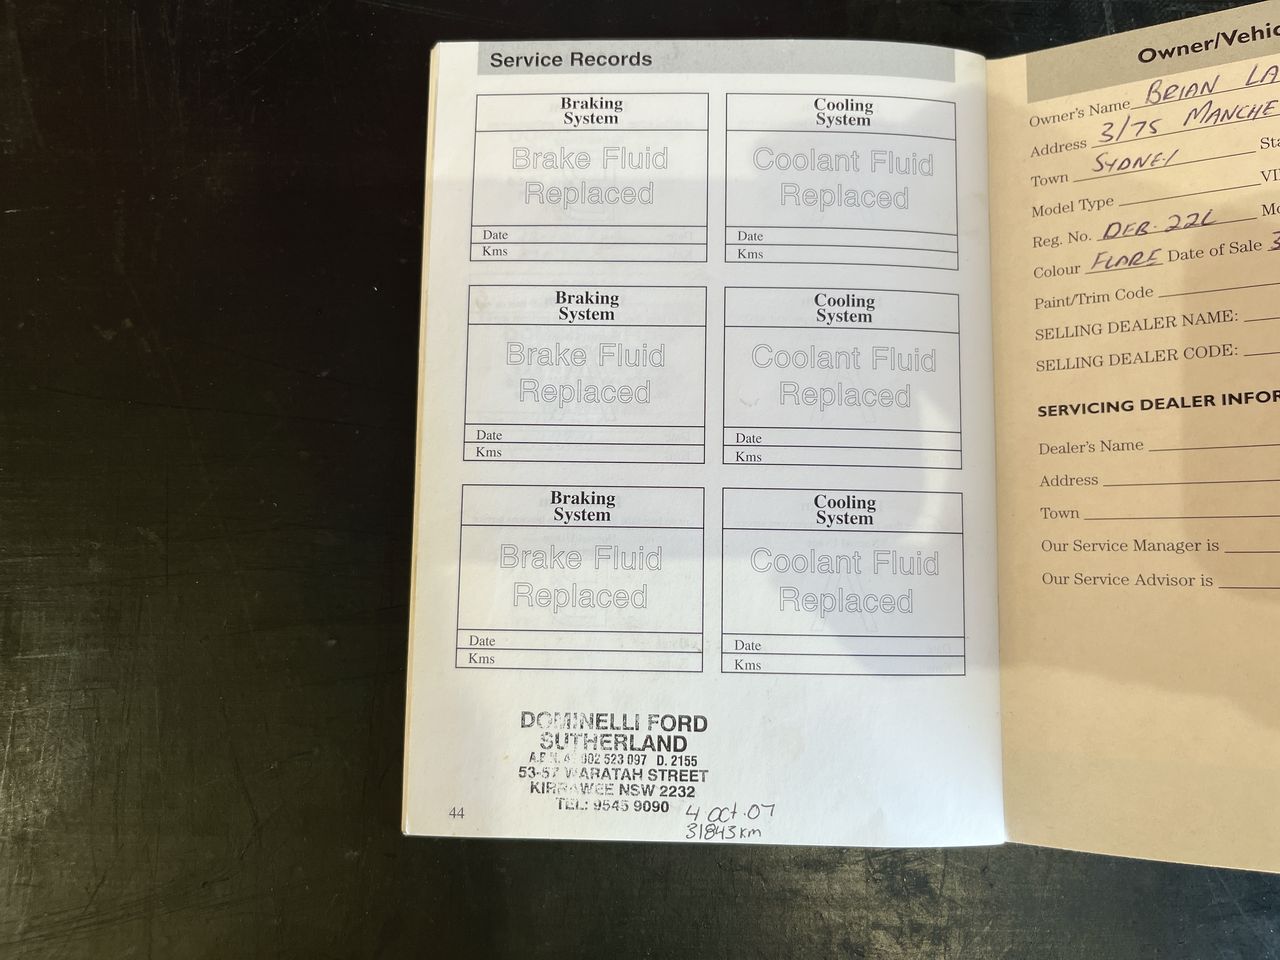 Service Records
Braking
System
Brake Fluid
Replaced
Date
Kms
Cooling
System
Coolant Fluid
Replaced
Date
Kms
Braking
System
Brake Fluid
Replaced
Date
Kms
Cooling
System
Coolant Fluid
Replaced
Date
Kms
Braking
System
Brake Fluid
Replaced
Date
Kms
Cooling
System
Coolant Fluid
Replaced
Date
Kms
DOMINELLI FORD
SUTHERLAND
002 523 097 D. 2155
53-57 WARATAH STREET
KIRRAWEE NSW 2232
TEL: 9545 9090
4 Oct. 07
31843 km
44
Owner/Vehic
Owner's Name BRIAN LA
Address 3/75 MANCHE
Town SYDNEY Sta
Model Type VI
Reg. No. Mo
Colour FLARE Date of Sale 3
Paint/Trim Code
SELLING DEALER NAME:
SELLING DEALER CODE:
SERVICING DEALER INFOR
Dealer's Name
Address
Town
Our Service Manager is
Our Service Advisor is